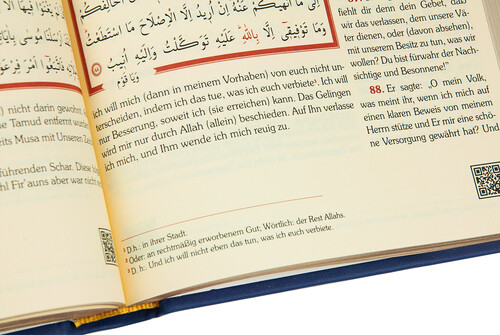 إِلَىٰ مَا أَنْهَىٰكُمْ عَنْهُ إِنْ أُرِيدُ إِلَّا الْإِصْلَاحَ مَا اسْتَطَعْتُ
وَمَا تَوْفِيقِي إِلَّا بِاللَّهِ عَلَيْهِ تَوَكَّلْتُ وَإِلَيْهِ أُنِيبُ ٨٨
وَيَا قَوْمِ
) nicht darin gewohnt
Tamud entfernt wurde
Musa mit Unseren Ze
führenden Schar. Diese
Fir'auns aber war nicht
ich will mich (dann in meinem Vorhaben) von euch nicht un-
terscheiden, indem ich das tue, was ich euch verbiete³. Ich will
nur Besserung, soweit ich (sie erreichen) kann. Das Gelingen
wird mir nur durch Allah (allein) beschieden. Auf Ihn verlasse
ich mich, und Ihm wende ich mich reuig zu.
¹ D.h.: in ihrer Stadt.
² Oder: an rechtmäßig erworbenem Gut; Wörtlich: der Rest Allahs.
³ D. h: Und ich will nicht eben das tun, was ich euch verbiete.
fiehlt dir denn dein Gebet, daß
wir das verlassen, dem unsere Vä-
ter dienen, oder (davon absehen),
mit unserem Besitz zu tun, was wir
wollen? Du bist fürwahr der Nach-
sichtige und Besonnene!“
88. Er sagte: „O mein Volk,
was meint ihr, wenn ich mich auf
einen klaren Beweis von meinem
Herrn stütze und Er mir eine schö-
ne Versorgung gewährt hat? Und